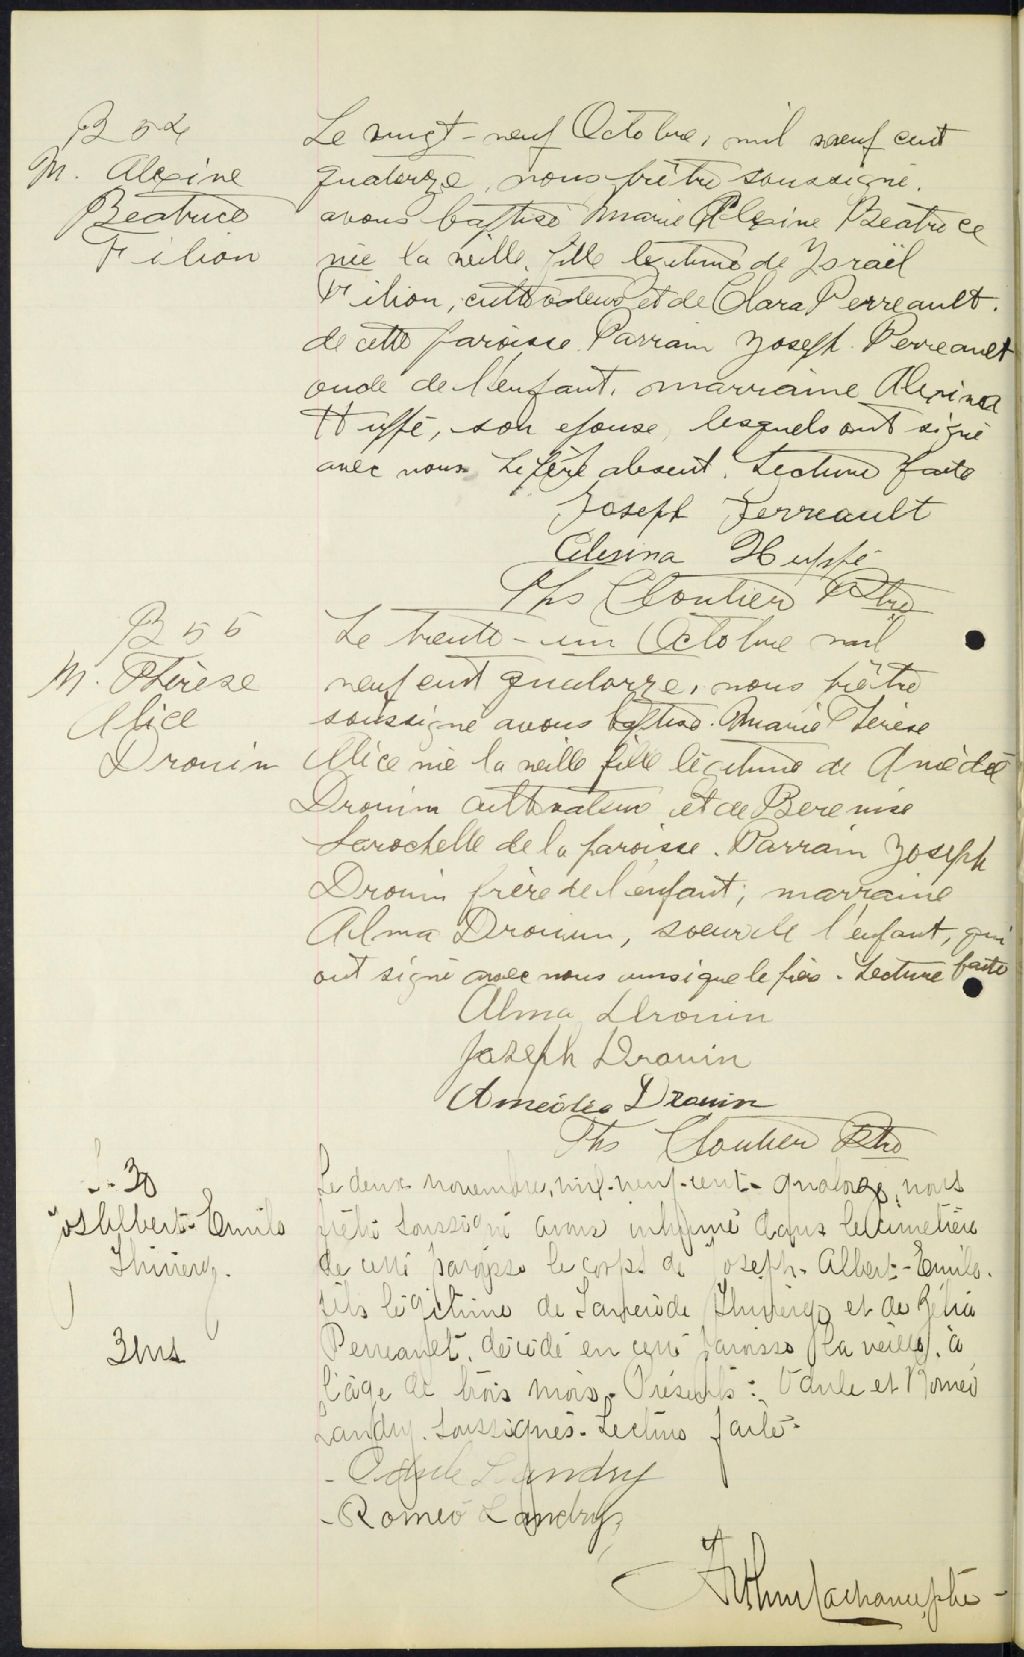 B 54
M. Alexine
Beatrice
Filion
Le vingt-neuf Octobre, mil neuf cent
quatorze, nous prêtre soussigné,
avons baptisé Marie Alexine Beatrice
née la veille, fille legitime de Israël
Filion, cultivateur et de Clara Perreault.
de cette paroisse. Parrain Joseph Perreault
oncle de l'enfant, marraine Alexina
Huppé, son epouse, lesquels ont signé
avec nous. Le père absent. Lecture faite
Joseph Perreault
Alexina Huppé
Ths Cloutier Ptre
B 55
M. Thérèse
Alice
Drouin
Le trente-un Octobre mil
neuf cent quatorze, nous prêtre
soussigné avons baptisé Marie Térèse
Alice née la veille fille légitime de Amédée
Drouin cultivateur et de Berenise
Larochelle de la paroisse. Parrain Joseph
Drouin frère de l'enfant; marraine
Alma Drouin, soeur de l'enfant, qui
ont signé avec nous ainsi que le père. Lecture faite
Alma Drouin
Joseph Drouin
Amédée Drouin
Ths Cloutier Ptre
S. 30
Jos Albert-Emile
Thivierge.
3 ms
Le deux novembre, mil-neuf-cent-quatorze, nous
prêtre soussigné avons inhumé dans le cimetière
de cette paroisse le corps de Joseph-Albert-Emile.
fils légitime de Thivierge et de Zélia
Perreault, décédé en cette paroisse la veille, à
l'âge de trois mois. Présents: Odule et Roméo
Landry. soussignés. Lecture faite.
- Odule Landry
- Roméo Landry
Arthur Lachance, ptre -